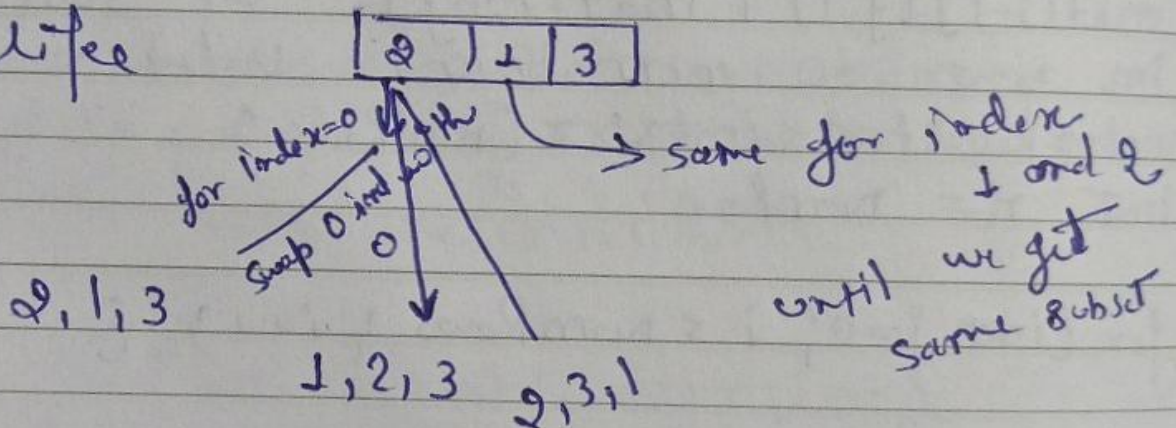 like
2 1 3
for index=0
swap 0 ind
0
same for index
1 and 2
until we get
same subset
2, 1, 3
1, 2, 3
2, 3, 1